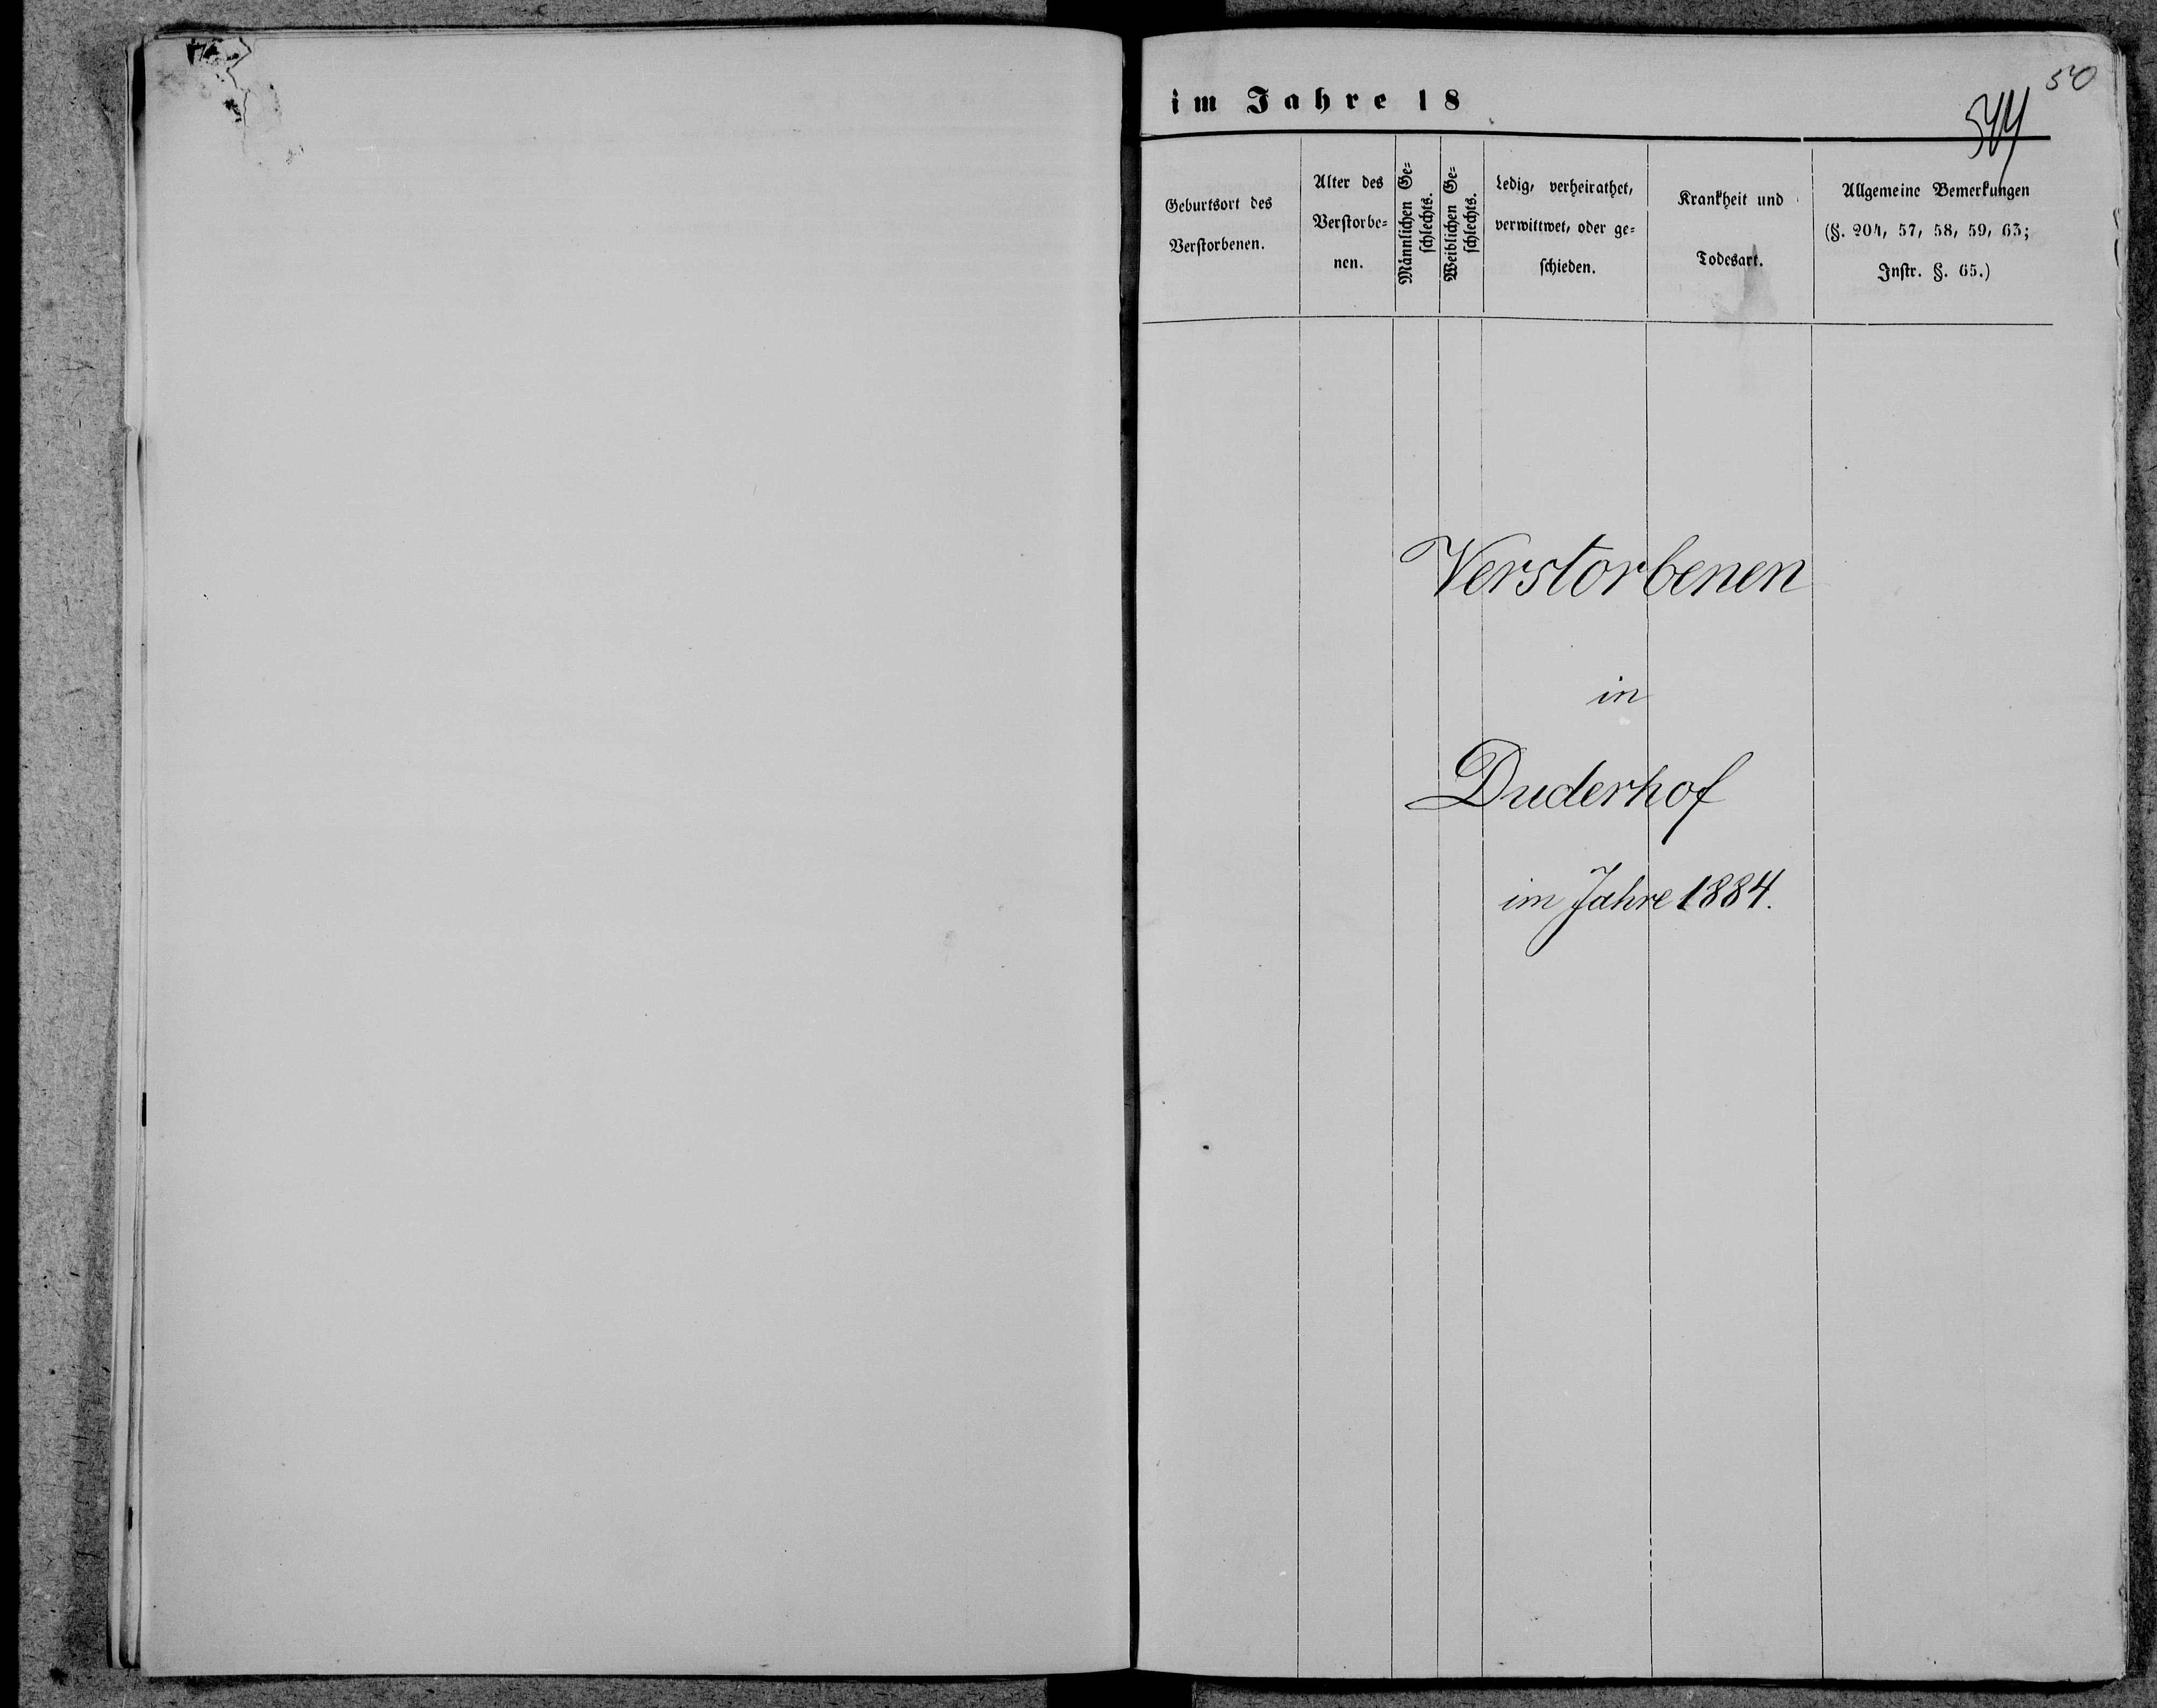 50
544
im Jahre 18
Geburtsort des
Verstorbenen.
Alter des
Verstorbe=
nen.
Männlichen Ge=
schlechts.
Weiblichen Ge=
schlechts.
Ledig, verheirathet,
verwittwet, oder ge=
schieden.
Krankheit und
Todesart.
Allgemeine Bemerkungen
(§. 204, 57, 58, 59, 63;
Instr. §. 65.)
Verstorbenen
in
Duderhof
im Jahre 1884.